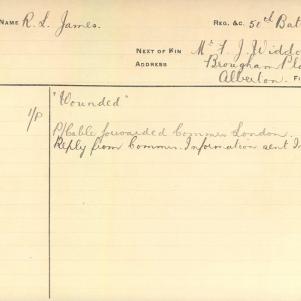 NAME R. L. James.
REG. &C. 50th Bat
NEXT OF KIN Mr F. J. Widdo
ADDRESS Brougham Pla
Alberton. F
"Wounded"
P/Cable forwarded Commer London.
Reply from Commer. Information sent I